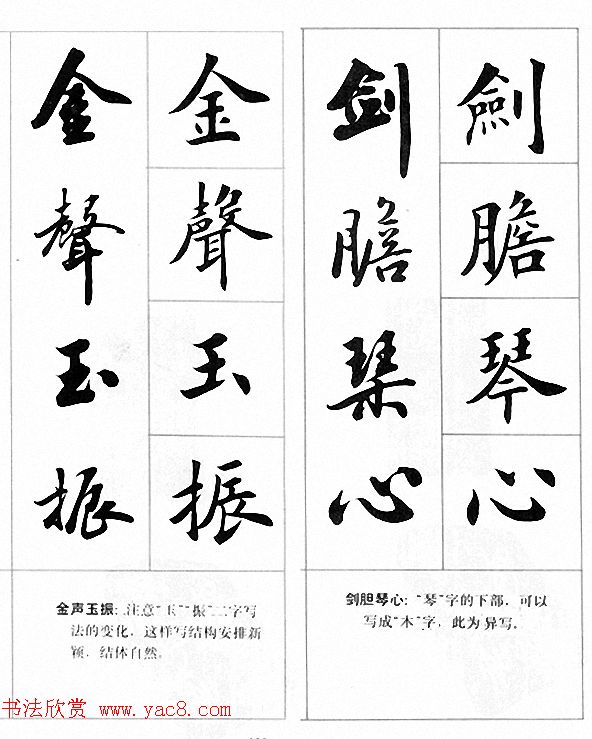 劍膽琴心
劍膽琴心
剑胆琴心：“琴”字的下部，可以
写成“木”字，此为异写。
金聲玉振
金聲玉振
金声玉振：注意“玉”“振”二字写
法的变化，这样写结构安排新
颖，结体自然。
书法欣赏 www.yac8.com